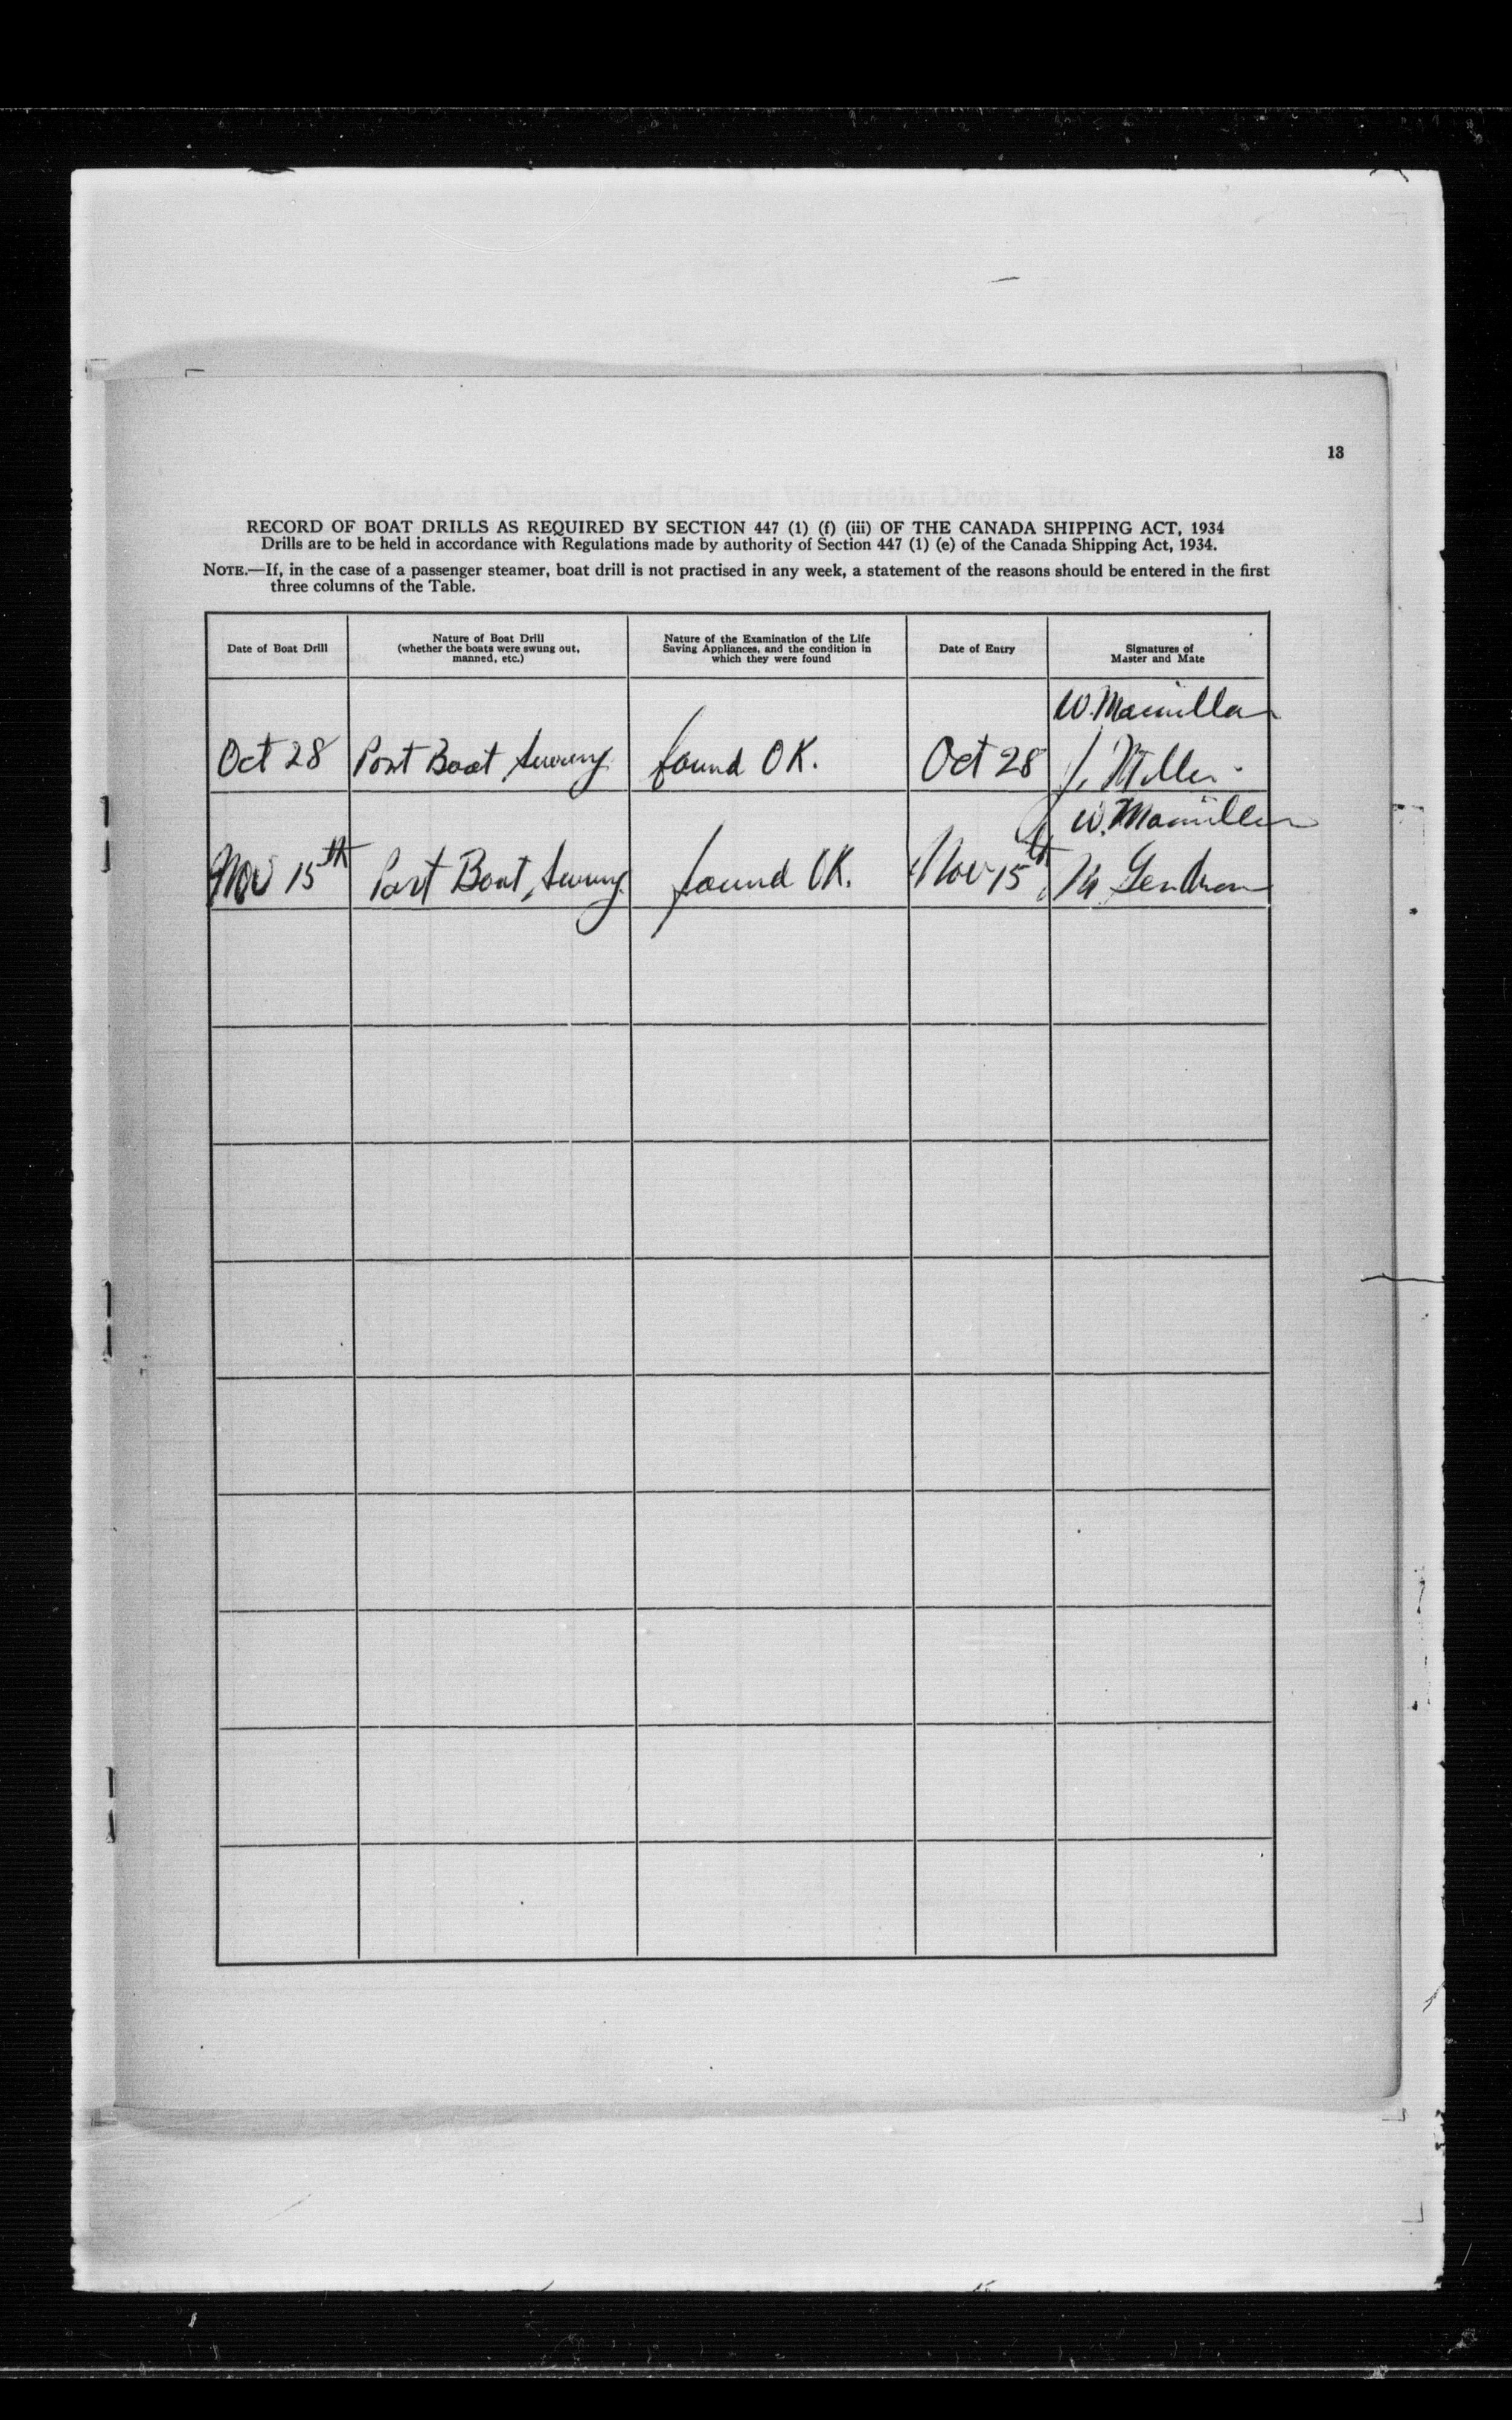 13
RECORD OF BOAT DRILLS AS REQUIRED BY SECTION 447 (1) (f) (iii) OF THE CANADA SHIPPING ACT, 1934
Drills are to be held in accordance with Regulations made by authority of Section 447 (1) (e) of the Canada Shipping Act, 1934.
NOTE.—If, in the case of a passenger steamer, boat drill is not practised in any week, a statement of the reasons should be entered in the first
three columns of the Table.
Date of Boat Drill
Nature of Boat Drill
(whether the boats were swung out,
manned, etc.)
Nature of the Examination of the Life
Saving Appliances, and the condition in
which they were found
Date of Entry
Signatures of
Master and Mate
W. Macmillan
Oct 28 Port Boat Swung found OK. Oct 28
W. Macmillan
Nov 15th Port Boat Swung found OK. Nov 15th Gendron